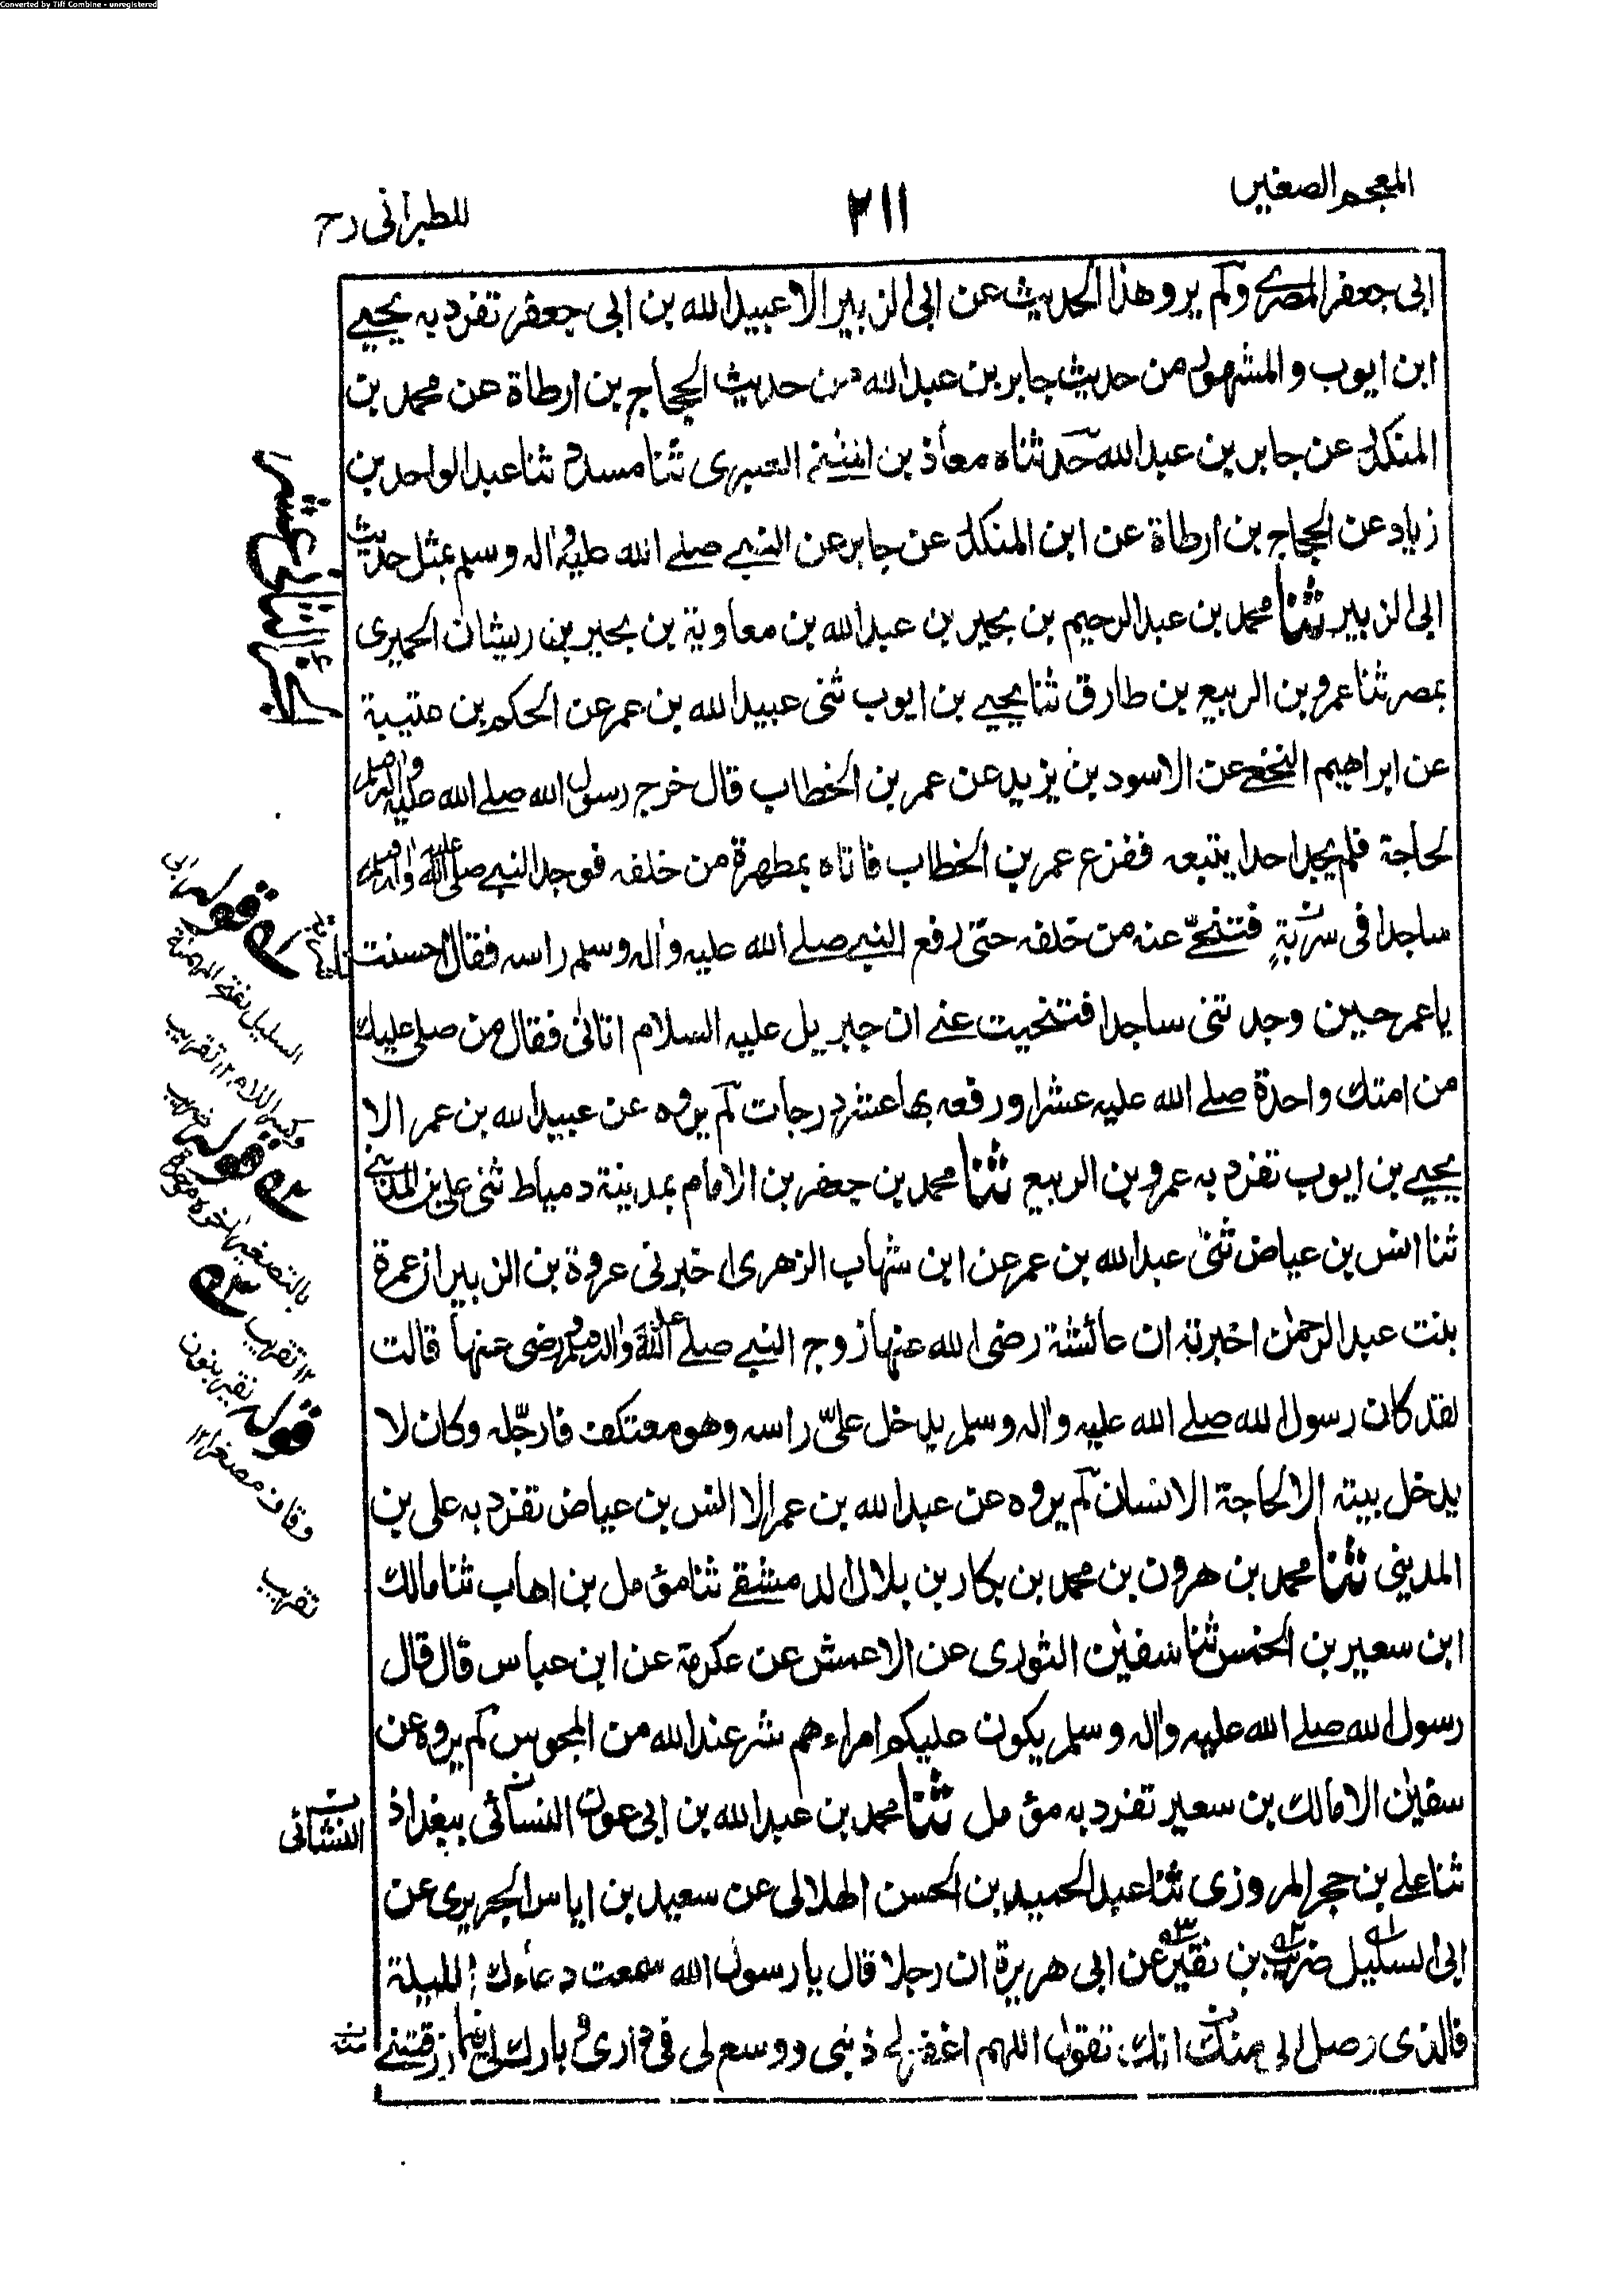 Converted by Tiff Combine - unregistered
المعجم الصغير
٢١١
للطبرانى رح
ابى جعفر المصرى ولم يرو هذا الحديث عن ابى الزبير الا عبيد الله بن ابى جعفر تفرد به يحيى
ابن ايوب والمشهور من حديث جابر بن عبد الله من حديث الحجاج بن ارطاة عن محمد بن
المنكدر عن جابر بن عبد الله حدثناه معاذ بن المثنى العنبرى ثنا مسدد ثنا عبد الواحد بن
زياد عن الحجاج بن ارطاة عن ابن المنكدر عن جابر عن النبي صلى الله عليه واله وسلم بمثل حديث
ابى الزبير ثنا محمد بن عبد الرحيم بن بحير بن عبد الله بن معاوية بن بحير بن ريشان الحميرى
بمصر ثنا عمرو بن الربيع بن طارق ثنا يحيى بن ايوب ثنى عبيد الله بن عمر عن الحكم بن عتيبة
عن ابراهيم النخعى عن الاسود بن يزيد عن عمر بن الخطاب قال خرج رسول الله صلى الله عليه واله وسلم
لحاجة فلم يجد احدا يتبعه ففزع عمر بن الخطاب فاتاه بمطهرة من خلفه فوجد النبي صلى الله عليه واله وسلم
ساجدا فى سربة فتنحى عنه من خلفه حتى رفع النبي صلى الله عليه واله وسلم راسه فقال احسنت
يا عمر حين وجدتنى ساجدا فتنحيت عنى ان جبريل عليه السلام اتانى فقال من صلى عليك
من امتك واحدة صلى الله عليه عشرا ورفعه بها عشر درجات لم يروه عن عبيد الله بن عمر الا
يحيى بن ايوب تفرد به عمرو بن الربيع ثنا محمد بن جعفر بن الامام بمدينة دمياط ثنى على بن المدينى
ثنا انس بن عياض ثنى عبد الله بن عمر عن ابن شهاب الزهرى اخبرنى عروة بن الزبير ان عمرة
بنت عبد الرحمن اخبرته ان عائشة رضى الله عنها زوج النبي صلى الله عليه واله وسلم رضى عنها قالت
لقد كان رسول الله صلى الله عليه واله وسلم يدخل علىّ راسه وهو معتكف فارجّله وكان لا
يدخل بيته الا لحاجة الانسان لم يروه عن عبد الله بن عمر الا انس بن عياض تفرد به على بن
المدينى ثنا محمد بن هرون بن محمد بن بكار بن بلال الدمشقى ثنا مؤمل بن اهاب ثنا مالك
ابن سعير بن الخمس ثنا سفين الثورى عن الاعمش عن عكرمة عن ابن عباس قال قال
رسول الله صلى الله عليه واله وسلم يكون عليكم امراء هم شر عند الله من المجوس لم يروه عن
سفين الا مالك بن سعير تفرد به مؤمل ثنا محمد بن عبد الله بن ابى عون النسائى ببغداد
ثنا على بن حجر المروزى ثنا عبد الحميد بن الحسن الهلالى عن سعيد بن اياس الجريرى عن
ابى السليل ضريب بن نقير عن ابى هريرة ان رجلا قال يا رسول الله سمعت دعاءك الليلة
فالذى وصل الى منك انك تقول اللهم اغفر لى ذنبى ووسع لى فى دارى وبارك لى فيما رزقتنى
الجزء الثانى عشر
قوله ابى
السليل بفتح المهملة
وكسر اللام ١٢ تقريب
قوله ضريب
بالتصغير اخره موحدة
١٢ تقريب
قوله نقير بنون
وقاف مصغرا ١٢
تقريب
النشائى